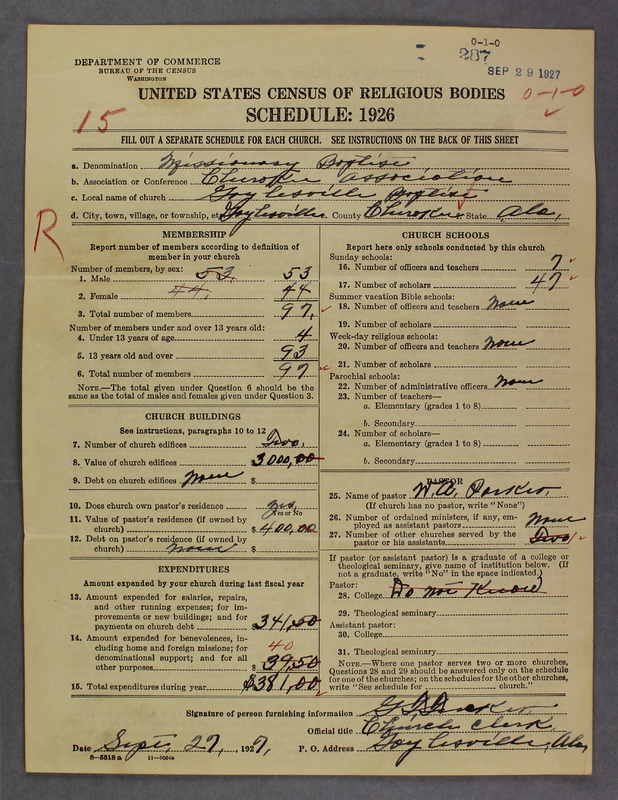 0-1-0
287
SEP 29 1927
DEPARTMENT OF COMMERCE
BUREAU OF THE CENSUS
WASHINGTON
UNITED STATES CENSUS OF RELIGIOUS BODIES
0-1-0
15
SCHEDULE: 1926
FILL OUT A SEPARATE SCHEDULE FOR EACH CHURCH. SEE INSTRUCTIONS ON THE BACK OF THIS SHEET
a. Denomination Missionary Baptist
b. Association or Conference Cherokee Association
c. Local name of church Gaylesville Baptist
d. City, town, village, or township, Gaylesville County Cherokee State Ala,
R
MEMBERSHIP
Report number of members according to definition of
member in your church
Number of members, by sex:
1. Male 53 53
2. Female 44, 44
3. Total number of members 97,
Number of members under and over 13 years old:
4. Under 13 years of age 4
5. 13 years old and over 93
6. Total number of members 97
NOTE.—The total given under Question 6 should be
same as the total of males and females given under Question 3.
CHURCH BUILDINGS
See instructions, paragraphs 10 to 12
7. Number of church edifices Two,
8. Value of church edifices 3000,00
9. Debt on church edifices None $
10. Does church own pastor's residence yes,
Yes or No
11. Value of pastor's residence (if owned by
church) $ 400,00
12. Debt on pastor's residence (if owned by
church) none $
EXPENDITURES
Amount expended by your church during last fiscal year
13. Amount expended for salaries, repairs,
and other running expenses; for im-
provements or new buildings; and for
payments on church debt 341,50
14. Amount expended for benevolences, in-
cluding home and foreign missions; for
denominational support; and for all
40
other purposes $ 39,50
15. Total expenditures during year $381,00
CHURCH SCHOOLS
Report here only schools conducted by this church
Sunday schools:
16. Number of officers and teachers 7
17. Number of scholars 47
Summer vacation Bible schools:
18. Number of officers and teachers None
19. Number of scholars
Week-day religious schools:
20. Number of officers and teachers None
21. Number of scholars
Parochial schools:
22. Number of administrative officers None
23. Number of teachers—
a. Elementary (grades 1 to 8)
b. Secondary
24. Number of scholars—
a. Elementary (grades 1 to 8)
b. Secondary
PASTOR
25. Name of pastor W.A. Parker,
(If church has no pastor, write "None")
26. Number of ordained ministers, if any, em-
ployed as assistant pastors None
27. Number of other churches served by the
pastor or his assistants Two
If pastor (or assistant pastor) is a graduate of a college or
theological seminary, give name of institution below. (If
not a graduate, write "No" in the space indicated.)
Pastor:
28. College Do not Know
29. Theological seminary
Assistant pastor:
30. College
31. Theological seminary
NOTE.—Where one pastor serves two or more churches,
Questions 28 and 29 should be answered only on the schedule
for one of the churches; on the schedules for the other churches,
write "See schedule for church."
Signature of person furnishing information
Official title Church Clerk
Date Sept, 27, 1927,
P. O. Address Gaylesville, Ala,
8—5518a 11—9034a